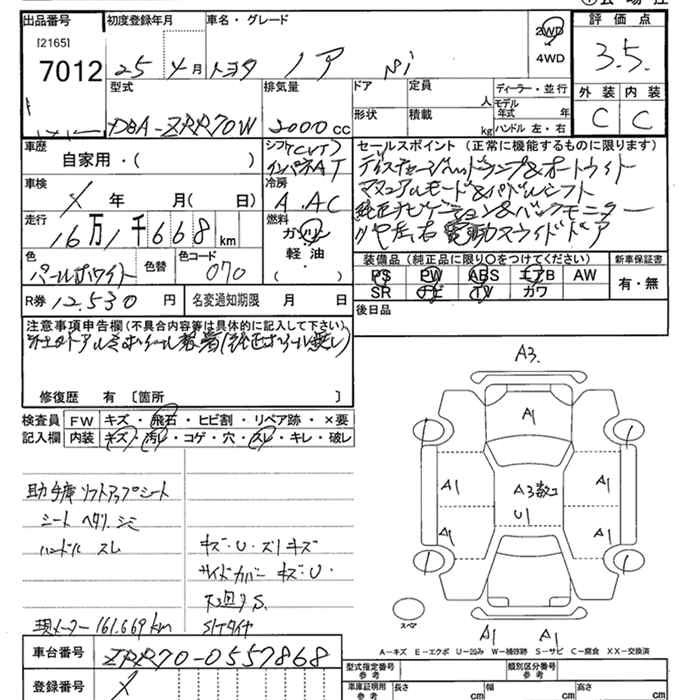 出品番号 初度登録年月 車名・グレード 評価点
[2165]
7012 25年4月 トヨタ ノア Si 2WD 3.5.
4WD
型式 排気量 ドア 定員 人 ディーラー・並行 外装 内装
モデル年式 年
DBA-ZRR70W 2000cc 形状 積載 kg ハンドル 左・右 C C
車歴 シフト(CVT) セールスポイント(正常に機能するものに限ります)
自家用・( ) インパネAT ディスチャージヘッドランプ&オートライト
車検 冷房 マニュアルモード&パドルシフト
X年 月( 日) A.AC 純正ナビゲーション&バックモニター
走行 燃料 リヤ左右電動スライドドア
16万1千668km ガソリン
軽油
( )
色 色替 色コード 装備品(純正品に限り○をつけてください) 新車保証書
パールホワイト 070 PS PW ABS エアB AW 有・無
SR ナビ TV カワ
R券 12,530円 名変通知期限 月 日 後日品
注意事項申告欄(不具合内容等は具体的に記入して下さい)
社外アルミホイール装着(純正ホイール無し)
修復歴 有 [箇所 ]
検査員 FW キズ・飛石・ヒビ割・リペア跡・×要
記入欄 内装 キズ・汚レ・コゲ・穴・スレ・キレ・破レ
助手席リフトアップシート
シート ヘタリ.シミ
ハンドル スレ
キズ・U・ズリキズ
サイドカバー キズ・U・
下廻りS.
現メーター 161,669km
S/Tタイヤ
A3.
A1
A1 A3数コ A1
U1
A1 A1
スペア
A1 A1
A-キズ E-エクボ U-凹み W-補修跡 S-サビ C-腐食 XX-交換済
車台番号 ZRR70-0557868
型式指定番号 参考 類別区分番号 参考
登録番号 X
車庫証明用 参考 長さ cm 幅 cm 高さ cm